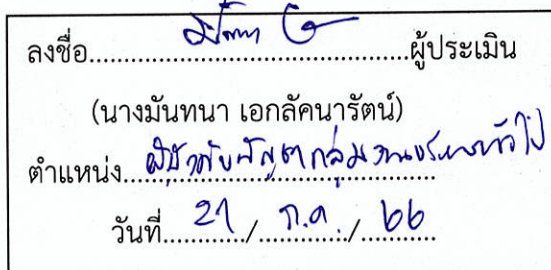 ลงชื่อ..........ผู้ประเมิน
(นางมันทนา เอกลัคนารัตน์)
ตำแหน่ง.....ผู้บังคับบัญชากลุ่มงานบริหารทั่วไป
วันที่.....21...../.....ก.ค....../.....66.....